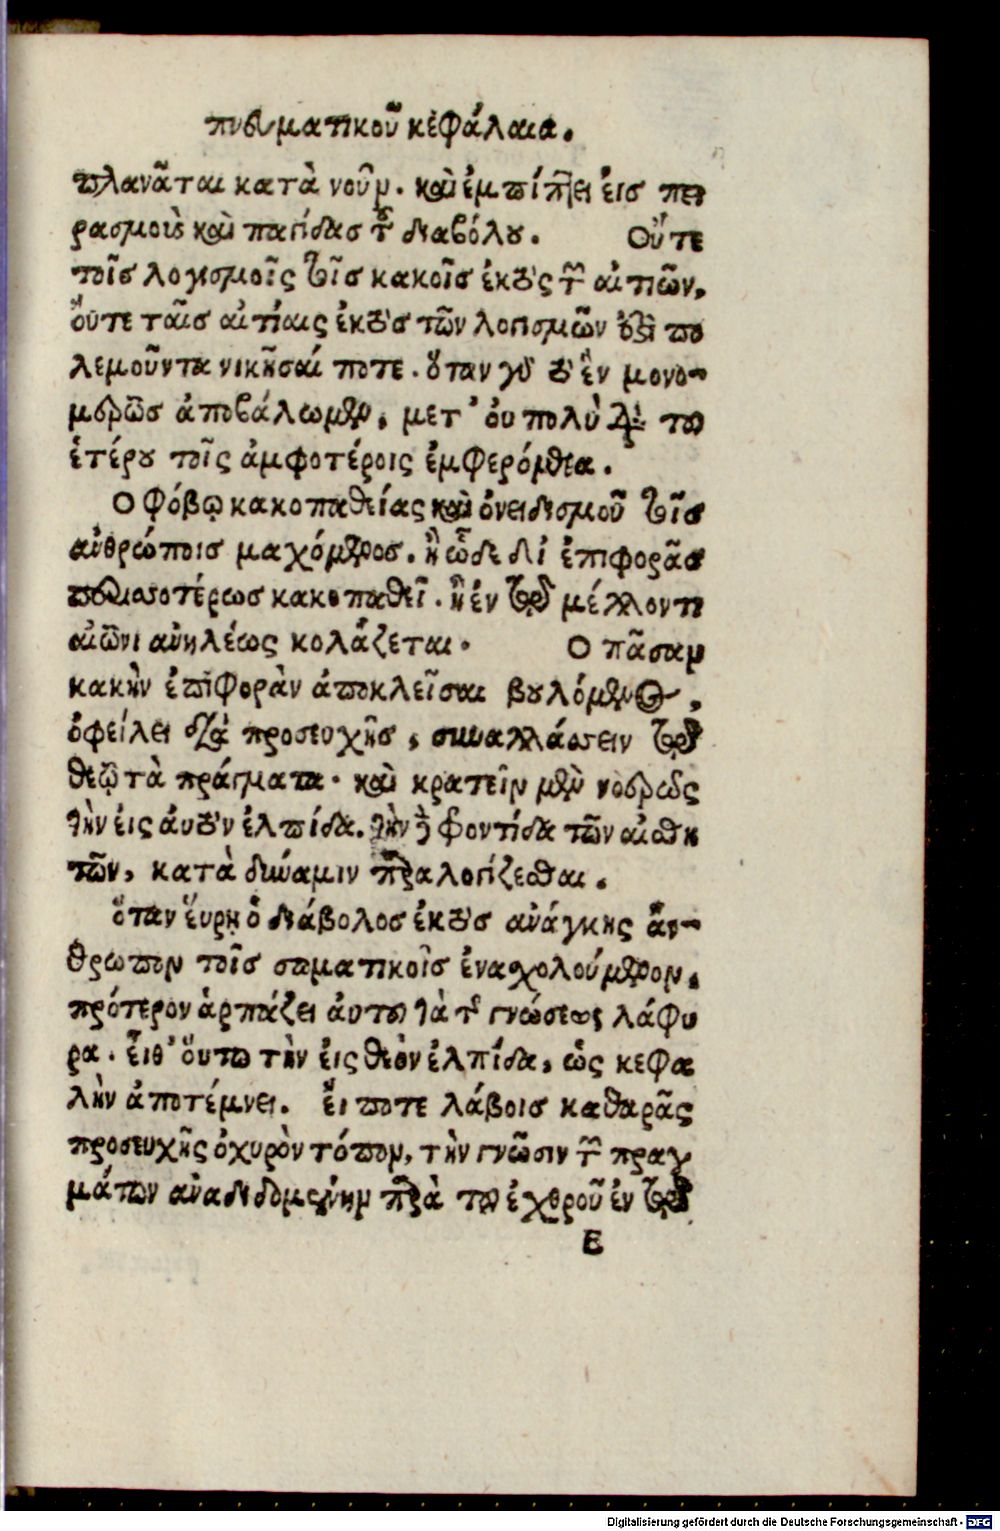 πνευματικοῦ κεφάλαια.
πλανᾶται κατὰ νοῦν. καὶ ἐμπίπτει εἰς πει
ρασμοὺς καὶ παγίδας τοῦ διαβόλου. Οὔτε
τοῖς λογισμοῖς τοῖς κακοῖς ἐκτὸς τῶν αἰτιῶν,
οὔτε ταῖς αἰτίαις ἐκτὸς τῶν λογισμῶν ἔξεστι πο
λεμοῦντα νικῆσαί ποτε. ὅταν γὰρ τὸ ἓν μονο-
μερῶς ἀποβάλωμεν, μετ' οὐ πολὺ διὰ τοῦ
ἑτέρου τοῖς ἀμφοτέροις ἐμφερόμεθα.
Ο φόβῳ κακοπαθείας καὶ ὀνειδισμοῦ τοῖς
ἀνθρώποις μαχόμενος. ἢ ὧδε δι' ἐπιφορᾶς
περισσοτέρως κακοπαθεῖ. ἢ ἐν τῷ μέλλοντι
αἰῶνι ἀνηλέως κολάζεται. Ο πᾶσαν
κακὴν ἐπιφορὰν ἀποκλεῖσαι βουλόμενος,
ὀφείλει διὰ προσευχῆς, συναλλάσσειν τῷ
θεῷ τὰ πράγματα. καὶ κρατεῖν μὲν νοερῶς
τὴν εἰς αὐτὸν ἐλπίδα. τὴν δὲ φροντίδα τῶν αἰσθη
τῶν, κατὰ δύναμιν παραλογίζεσθαι.
ὅταν εὕρῃ ὁ διάβολος ἐκτὸς ἀνάγκης ἄν-
θρωπον τοῖς σωματικοῖς ἐνασχολούμενον,
πρότερον ἁρπάζει αὐτοῦ τὰ τῆς γνώσεως λάφυ
ρα. εἶθ' οὕτω τὴν εἰς θεὸν ἐλπίδα, ὡς κεφα
λὴν ἀποτέμνει. εἴ ποτε λάβοις καθαρᾶς
προσευχῆς ὀχυρὸν τόπον, τὴν γνῶσιν τῶν πραγ
μάτων ἀναδιδομένην παρὰ τοῦ ἐχθροῦ ἐν τῷ
E
Digitalisierung gefördert durch die Deutsche Forschungsgemeinschaft - DFG